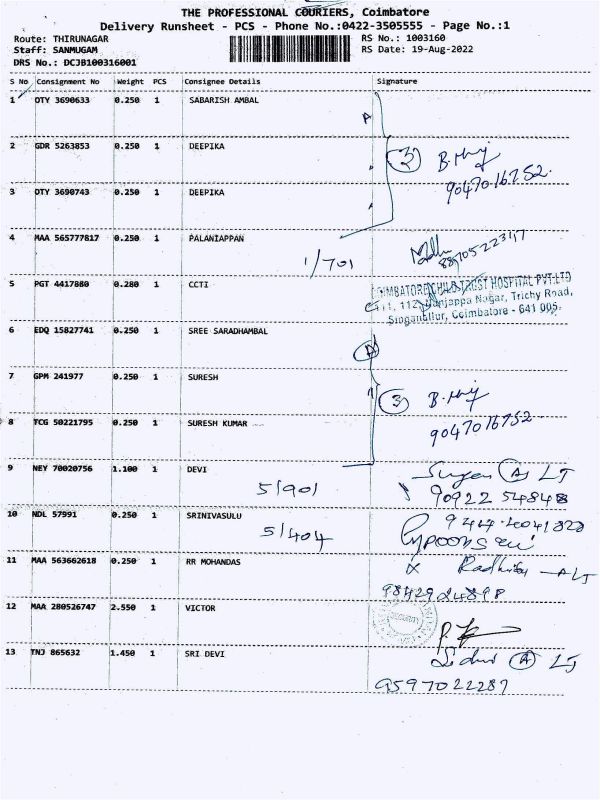 THE PROFESSIONAL COURIERS, Coimbatore
Delivery Runsheet - PCS - Phone No.:0422-3505555 - Page No.:1
Route: THIRUNAGAR RS No.: 1003160
Staff: SANMUGAM RS Date: 19-Aug-2022
DRS No.: DCJB100316001
S No Consignment No Weight PCS Consignee Details Signature
1 OTY 3690633 0.250 1 SABARISH AMBAL A
2 GDR 5263853 0.250 1 DEEPIKA 3
90470 16752.
3 OTY 3690743 0.250 1 DEEPIKA
4 MAA 565777817 0.250 1 PALANIAPPAN
1/701
5 PGT 4417880 0.280 1 CCTI
COIMBATORE CHILD TRUST HOSPITAL PVT.LTD
Nanjappa Nagar, Trichy Road,
Singanallur, Coimbatore - 641 005.
6 EDQ 15827741 0.250 1 SREE SARADHAMBAL A
7 GPM 241977 0.250 1 SURESH 3
8 TCG 50221795 0.250 1 SURESH KUMAR 9047016752
9 NEY 70020756 1.100 1 DEVI A LJ
5/901 90922 54848
10 NDL 57991 0.250 1 SRINIVASULU
5/404
11 MAA 563662618 0.250 1 RR MOHANDAS
12 MAA 280526747 2.550 1 VICTOR
13 TNJ 865632 1.450 1 SRI DEVI A LJ
9597022287